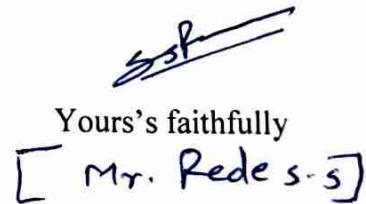 Yours's faithfully
[ Mr. Rede s.s]